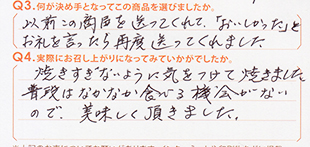 Q3.何が決め手となってこの商品を選びましたか。
以前この商品を送ってくれて、「おいしかった」と
お礼を言ったら再度送ってくれました。
Q4.実際にお召し上がりになってみていかがでしたか。
焼きすぎないように気をつけて焼きました。
普段はなかなか食べる機会がない
ので、美味しく頂きました。